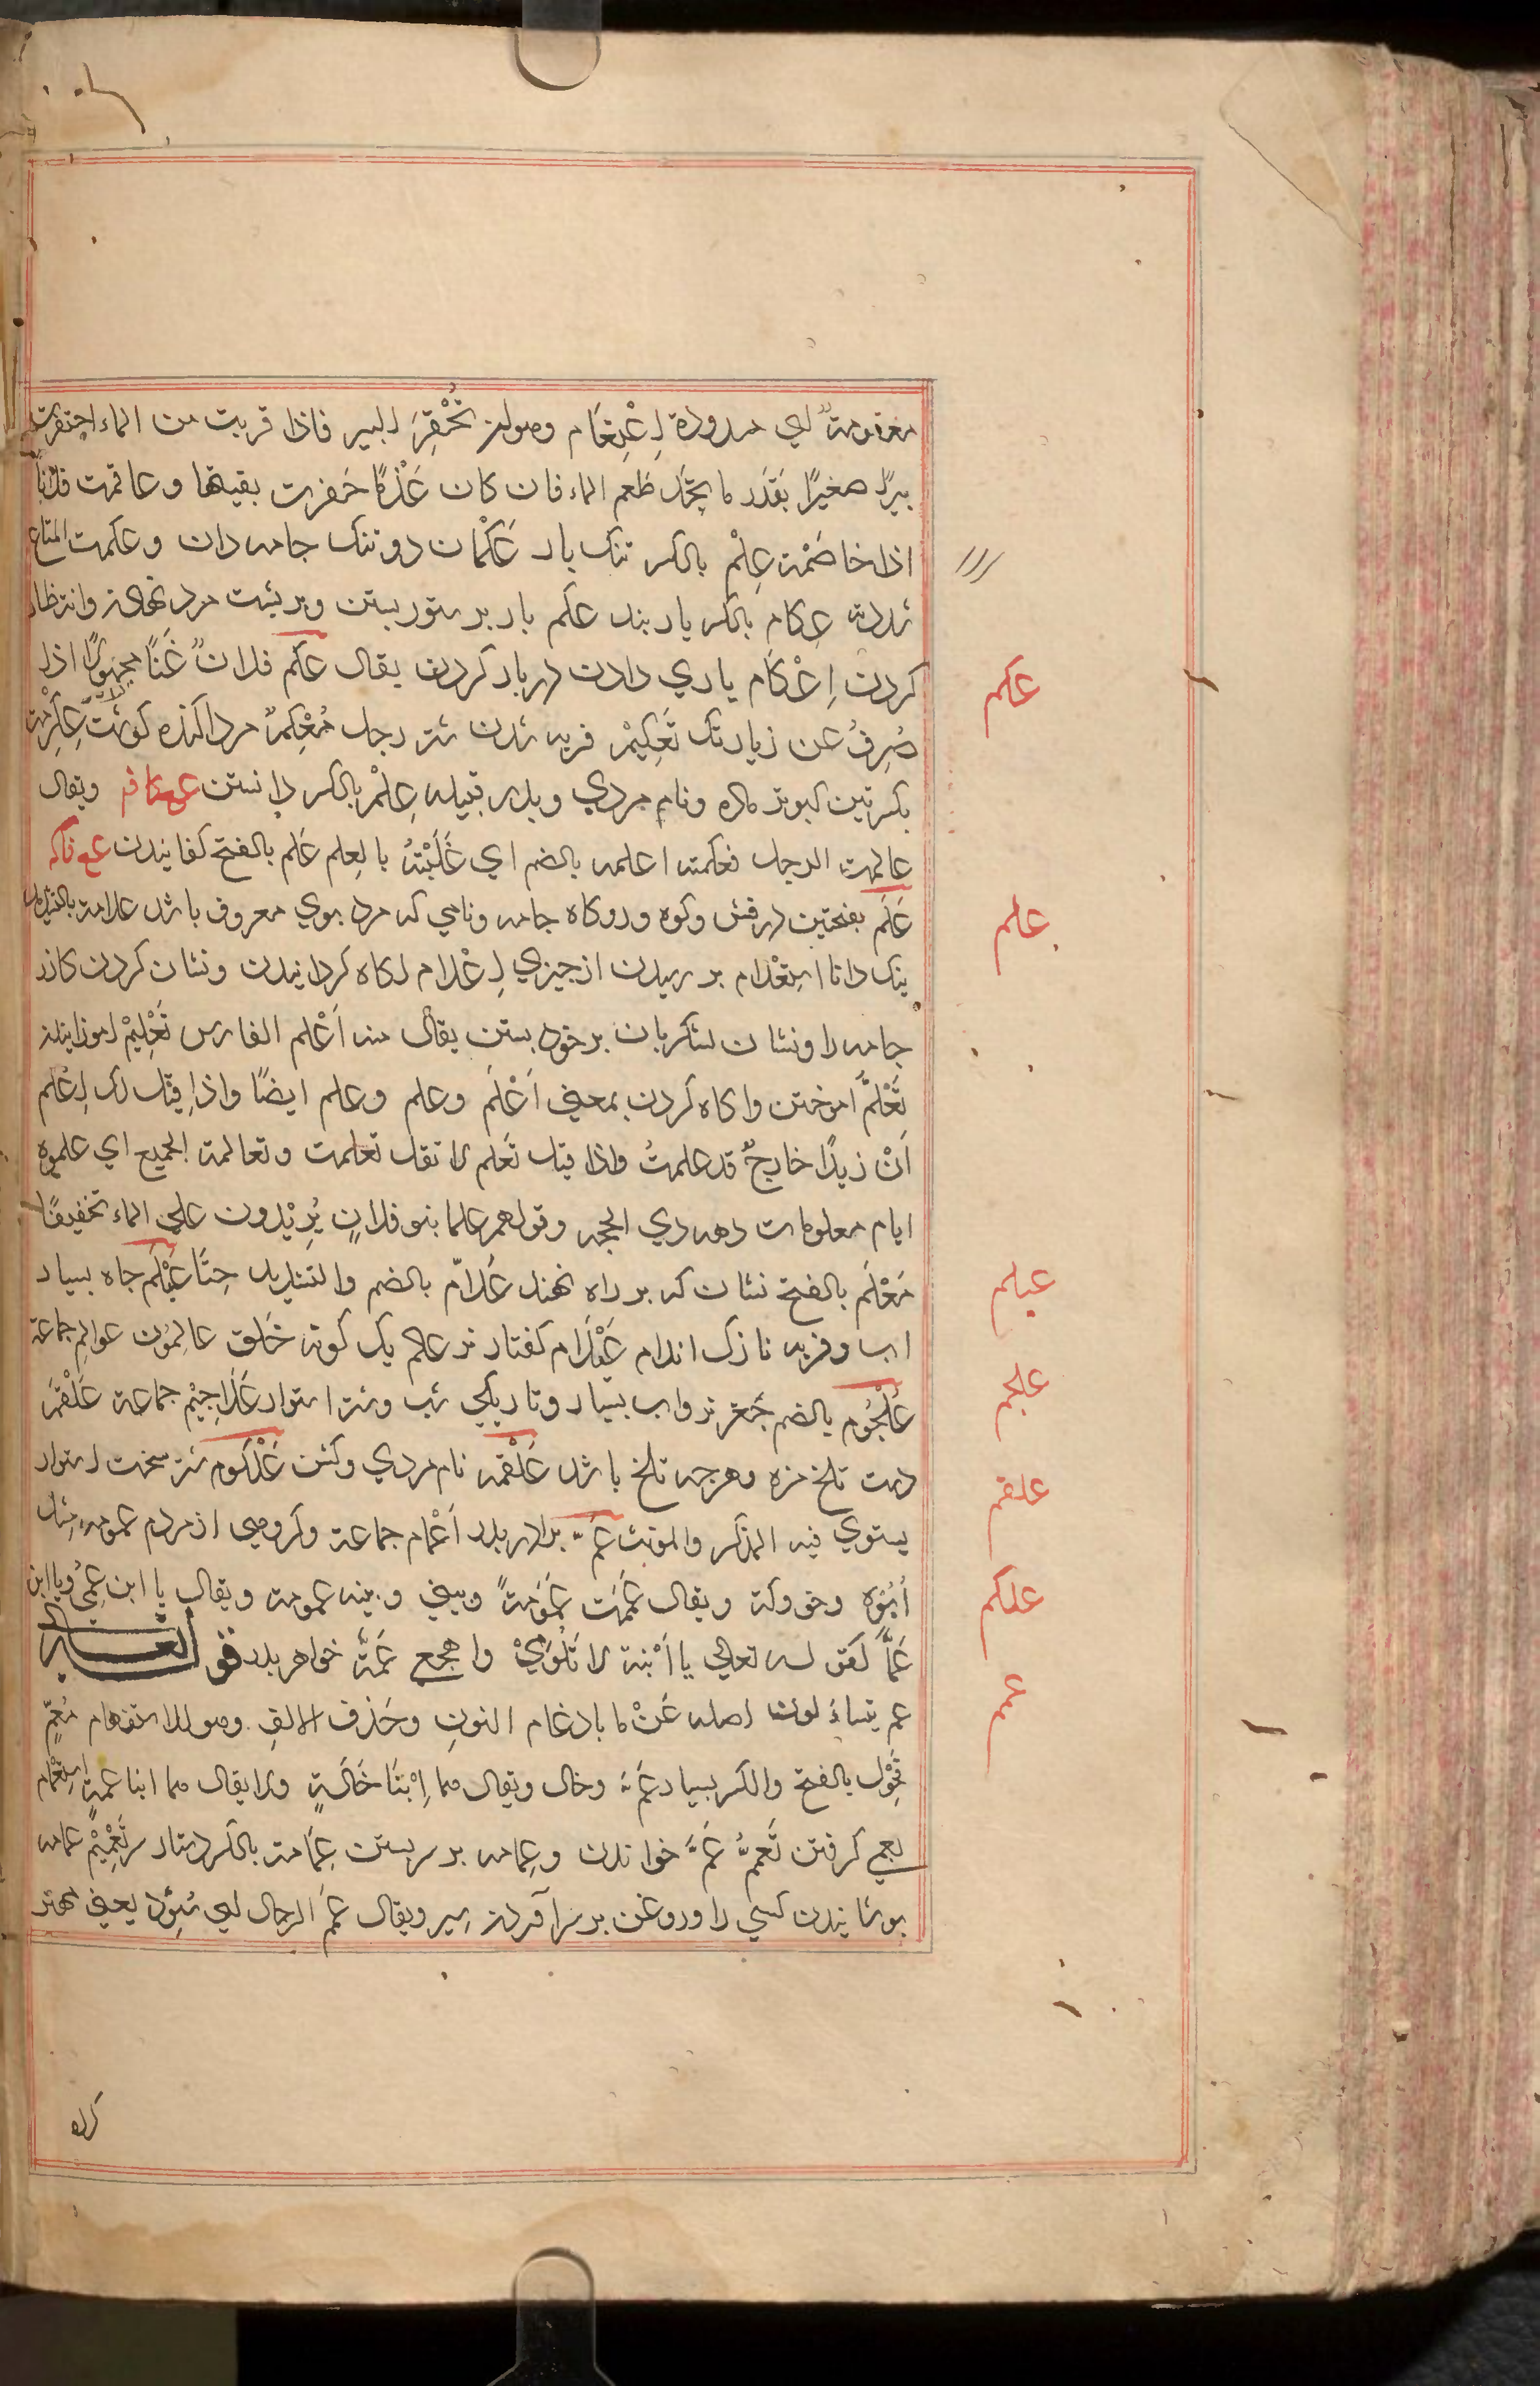 معقومة اي مسدودة اِعْتِقَام وهو ان تَحْفِرَ البير فاذا قربت من الماء احتفرت
بيرًا صغيرًا بقَدَر ما تجد طعم الماء فان كان عَذْبًا حَفرت بقيتها وعاقمت فلانًا
اذا خاصَمْته عِكْم بالكسر تنك بار عَكْمان دو تنك جامه دان وعكمت المتاع
شددته عِكام بالكسر بار بند عكم بار بر ستور بستن وبر پشت مرد نهادن وانتظار
كردن اِعْكام ياري دادن در بار كردن يقال عكم فلانٌ عَنَّا مجهولًا اذا
صُرِفُ عن زيارتك تَعكِيمْ فربه شدن شتر رجل مُعْكِمٌ مرد اكنده كوشت عِكْرِمة
بكسرتين كبوتر ماده ونام مردي وپدر قبيله عِلْمْ بالكسر دانستن ويقال
عالمت الرجل فعلمته اعلمه بالضم اي غَلَبْتهُ بالعِلم عَلم بالفتح كفانيدن
عَلَم بفتحتين درفش وكوه وروكاه جامه ونامي كه مرد بوي معروف باشد علامة بالتشديد
نيك دانا استِعْلام بر رسيدن از چيزي اِعْلام اكاه كردانيدن ونشان كردن كازر
جامه را ونشان لشكريان بر خود بستن يقال منه اَعْلم الفارس تَعْلِيمْ اموزانيدن
تَعْلمَّ اموختن واكاه كردن بمعني اَعْلَم وعلم وعلم ايضًا واذا قيل لك اِعْلم
اَنْ زيدًا خارجٌ قد علمتُ واذا قيل تَعَلم لا تقل تعلمت وتعالمه الجميع اي علموه
ايام معلومات دهه ذي الحجه وقولهم علما بنو فلانٍ يُرِيْدون علي الماء تخفيفًا
مَعْلَم بالفتح نشان كه بر راه نهند عُلامّ بالضم والتشديد حِنّا عَيْلَم جاه بسيار
اب وفربه نازك اندام عَيْلام كفتار نر عالم يك كونه خَلق عالِمُون عوالم جماعة
عُلْجُوم بالضم جُغز نر واب بسيار وتاريكي شب وشتر استوار عَلاجِيْم جماعة عَلْقم
درخت تلخ مزه وهرچه تلخ باشد عَلْقمه نام مردي وكشن عُلْكوم شتر سخت استوار
يستوي فيه المذكر والمونث عَمّ برادر پدر اَعْمام جماعة وكروهي از مردم عمومة مثل
اُبُوّه وخوولة ويقال عَمَمْت عُمُوْمةً وبيني وبينه عمومة ويقال يا ابن عَمِّي ويا ابن
عَمّا كقوله تعالي يا اَبْنة لا تَلُوْمِيْ واهجعي عَمَّه خواهر پدر قوله تعالي
عم يتساءلون اصله عَنْ ما بادغام النونِ وحَذف الالفِ وهو للاستفهام مُعمّ
مُخْوِل بالفتح والكسر بسيار عَمّ وخال ويقال هما اِبْنَا خَالةٍ ولا يقال هما ابنا عمةٍ اسِتِعْمام
بعمي كرفتن تَعممّ عَمّ خواندن وعِمامه بر سر بستن عِمَامة بالكسر دستار سر تَعْمِيْمْ عمامه
بوشانيدن كسي را وروغن بر سر آوردن شير ويقال عُمَّ الرجال اي سُوِّد يعني مهتر
كرده
عكم
علم
عيلم
علجم
علقم
علكم
عمم